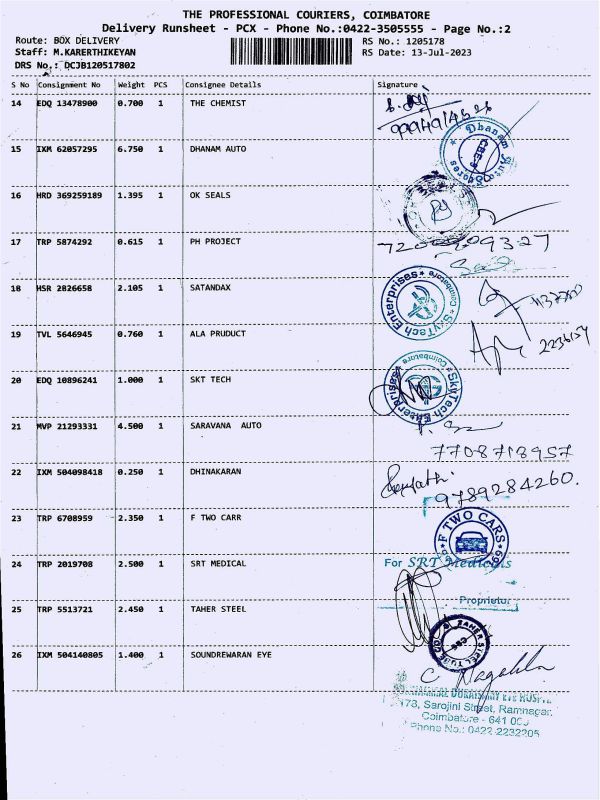 THE PROFESSIONAL COURIERS, COIMBATORE
Delivery Runsheet - PCX - Phone No.:0422-3505555 - Page No.:2
Route: BOX DELIVERY RS No.: 1205178
Staff: M.KARERTHIKEYAN RS Date: 13-Jul-2023
DRS No.: DCJB120517802
S No Consignment No Weight PCS Consignee Details Signature
14 EDQ 13478900 0.700 1 THE CHEMIST
15 IXM 62057295 6.750 1 DHANAM AUTO Dhanam Auto Stores CBE-9
16 HRD 369259189 1.395 1 OK SEALS
17 TRP 5874292 0.615 1 PH PROJECT
18 HSR 2826658 2.105 1 SATANDAX SkyTech Enterprises Coimbatore
19 TVL 5646945 0.760 1 ALA PRUDUCT 2236154
20 EDQ 10896241 1.000 1 SKT TECH SkyTech Enterprises Coimbatore
21 MVP 21293331 4.500 1 SARAVANA AUTO
7708718957
22 IXM 504098418 0.250 1 DHINAKARAN
9789284260.
23 TRP 6708959 2.350 1 F TWO CARR F TWO CARS
24 TRP 2019708 2.500 1 SRT MEDICAL For SRT Medicals
Proprietor
25 TRP 5513721 2.450 1 TAHER STEEL TAHER STEEL TUBE CO
26 IXM 504140805 1.400 1 SOUNDREWARAN EYE
173, Sarojini Street, Ramnagar,
Coimbatore - 641 00
Phone No.: 0422-2232205